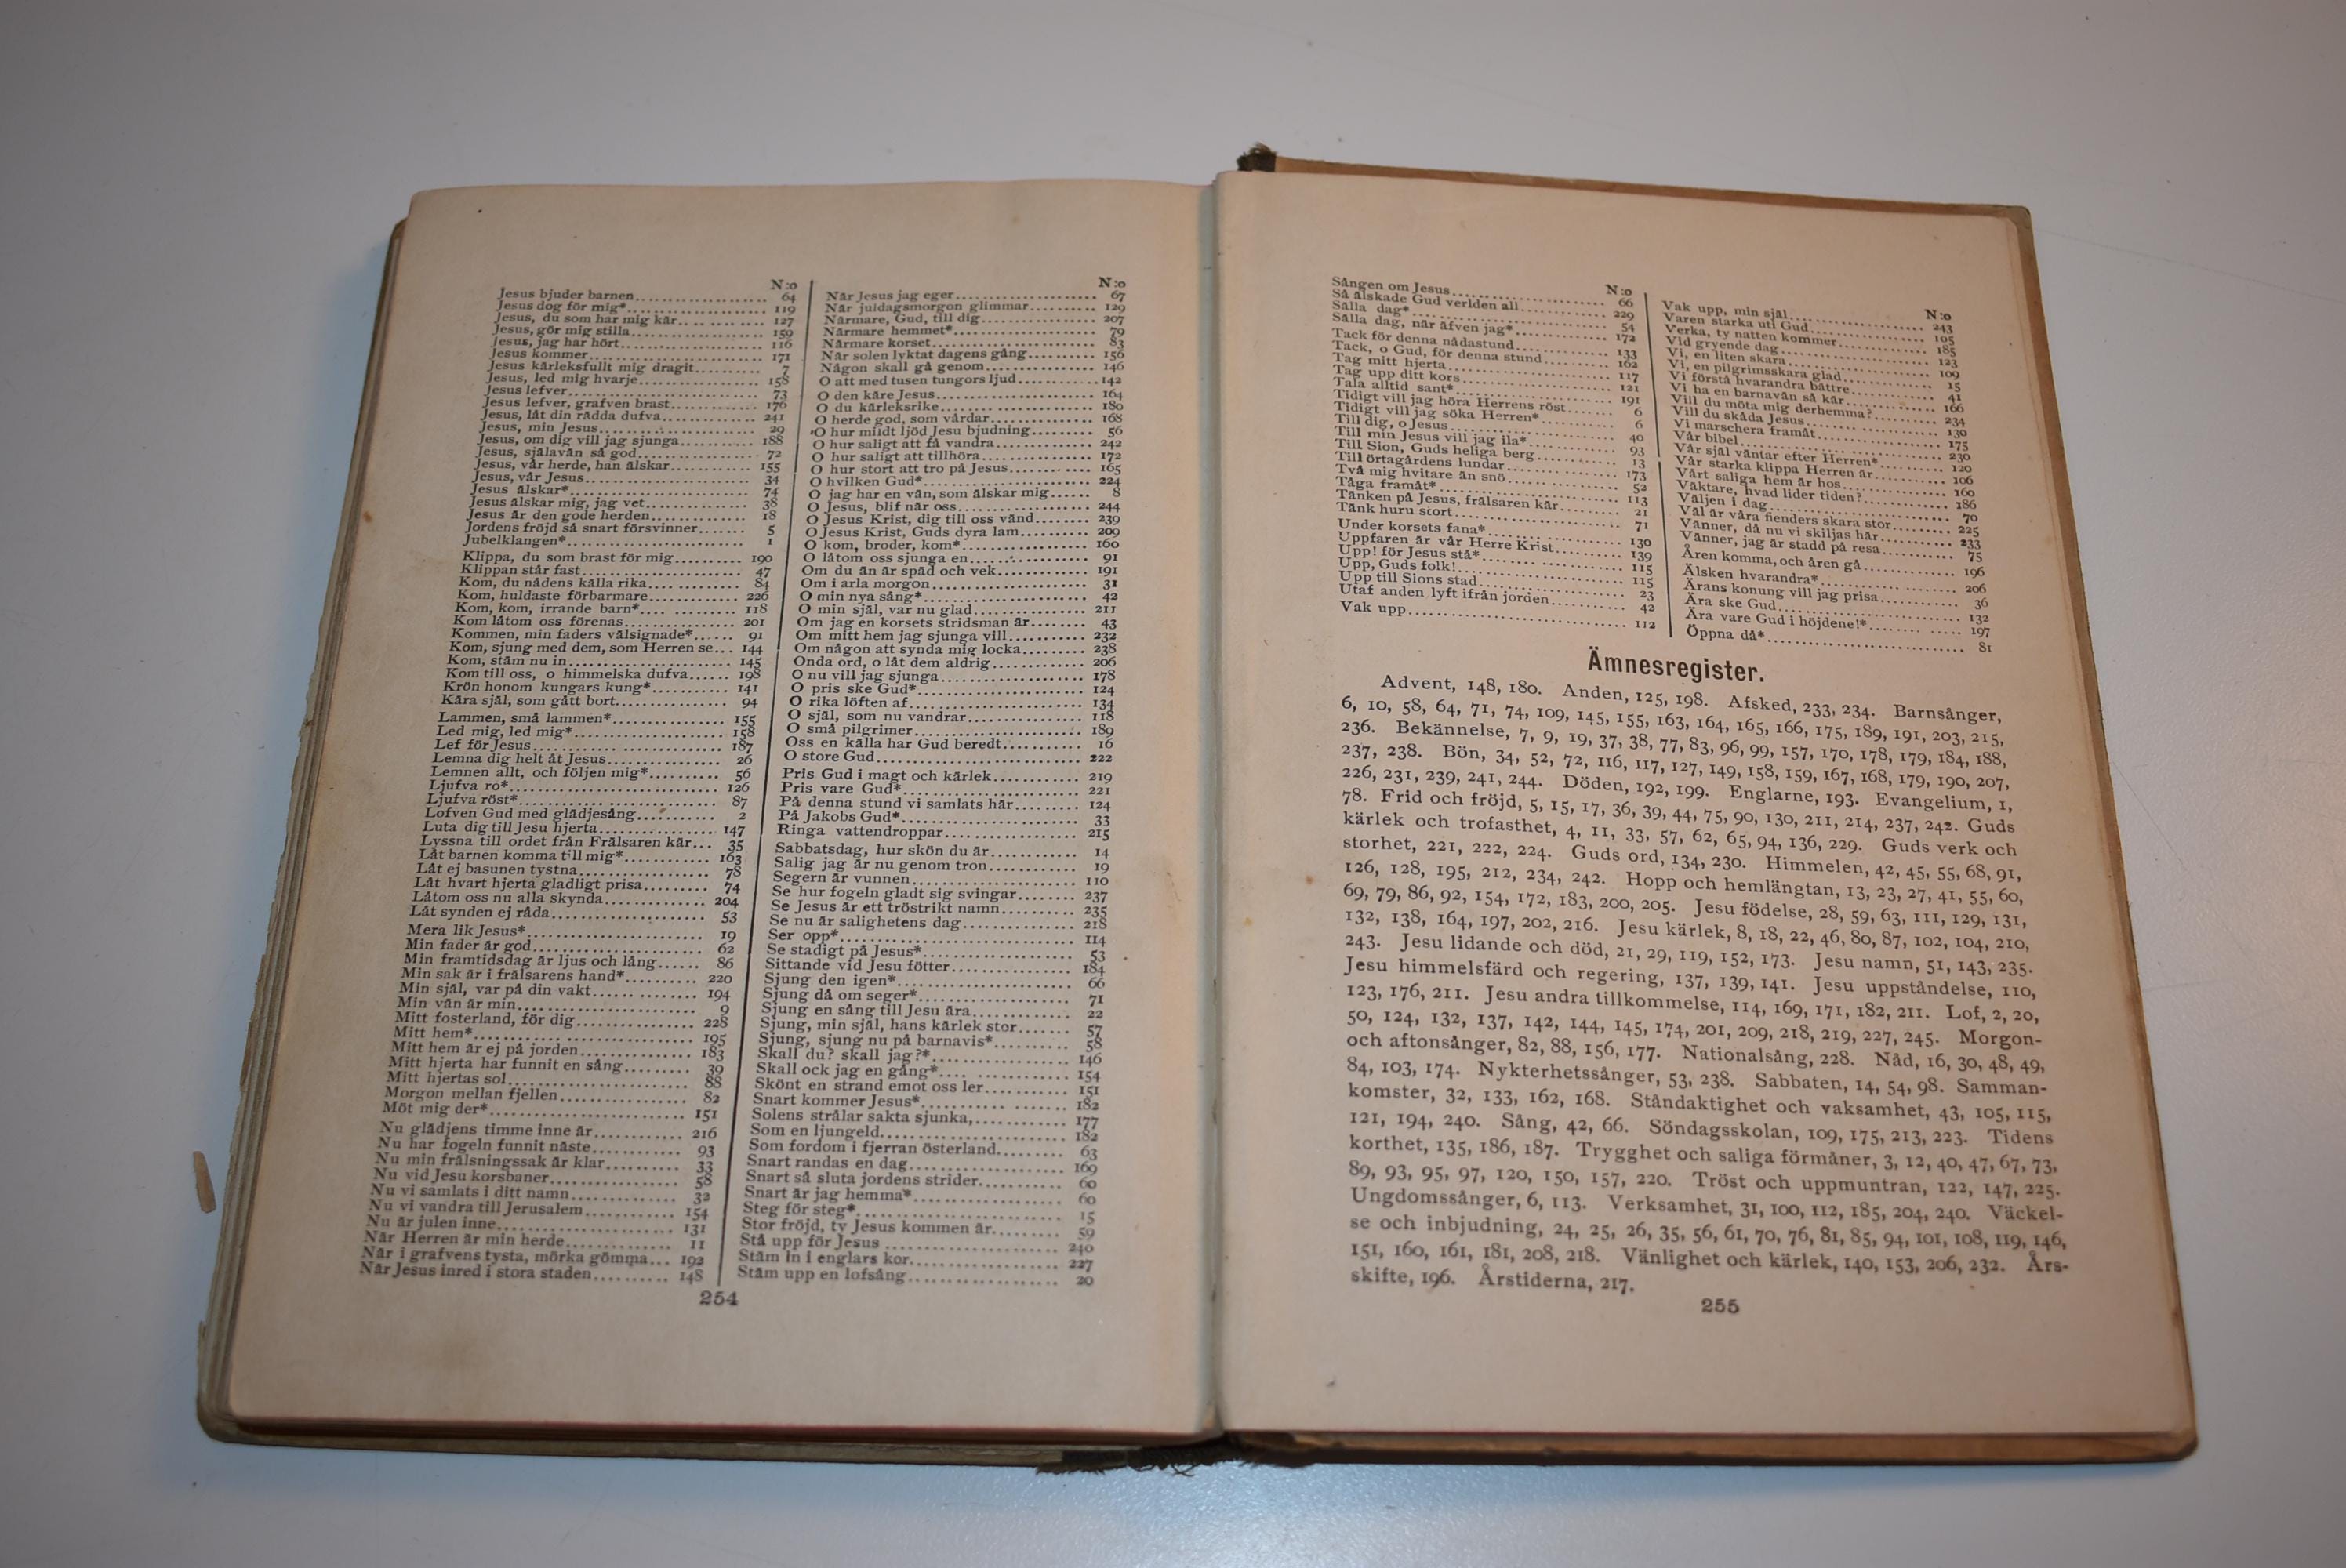 N:o
Jesus bjuder barnen 64
Jesus dog för mig* 119
Jesus, du som har mig kär 127
Jesus, gör mig stilla 159
Jesus, jag har hört 116
Jesus kommer 171
Jesus kärleksfullt mig dragit 7
Jesus, led mig hvarje 158
Jesus lefver 73
Jesus lefver, grafven brast 176
Jesus, låt din rädda dufva 241
Jesus, min Jesus 29
Jesus, om dig vill jag sjunga 188
Jesus, själavän så god 72
Jesus, vår herde, han älskar 155
Jesus, vår Jesus 34
Jesus älskar* 74
Jesus älskar mig, jag vet 38
Jesus är den gode herden 18
Jordens fröjd så snart försvinner 5
Jubelklangen* 1
Klippa, du som brast för mig 190
Klippan står fast 47
Kom, du nådens källa rika 84
Kom, huldaste förbarmare 226
Kom, kom, irrande barn* 118
Kom låtom oss förenas 201
Kommen, min faders välsignade* 91
Kom, sjung med dem, som Herren se 144
Kom, stäm nu in 145
Kom till oss, o himmelska dufva 198
Krön honom kungars kung* 141
Kära själ, som gått bort 94
Lammen, små lammen* 155
Led mig, led mig* 158
Lef för Jesus 187
Lemna dig helt åt Jesus 26
Lemnen allt, och följen mig* 56
Ljufva ro* 126
Ljufva röst* 87
Lofven Gud med glädjesång 2
Luta dig till Jesu hjerta 147
Lyssna till ordet från Frälsaren kär 35
Låt barnen komma till mig* 163
Låt ej basunen tystna 78
Låt hvart hjerta gladligt prisa 74
Låtom oss nu alla skynda 204
Låt synden ej råda 53
Mera lik Jesus* 19
Min fader är god 62
Min framtidsdag är ljus och lång 86
Min sak är i frälsarens hand* 220
Min själ, var på din vakt 194
Min vän är min 9
Mitt fosterland, för dig 228
Mitt hem* 195
Mitt hem är ej på jorden 183
Mitt hjerta har funnit en sång 39
Mitt hjertas sol 88
Morgon mellan fjellen 82
Möt mig der* 151
Nu glädjens timme inne är 216
Nu har fogeln funnit näste 93
Nu min frälsningssak är klar 33
Nu vid Jesu korsbaner 58
Nu vi samlats i ditt namn 32
Nu vi vandra till Jerusalem 154
Nu är julen inne 131
När Herren är min herde 11
När i grafvens tysta, mörka gömma 192
När Jesus inred i stora staden 148
N:o
När Jesus jag eger 67
När juldagsmorgon glimmar 129
Närmare, Gud, till dig 207
Närmare hemmet* 79
Närmare korset 83
När solen lyktat dagens gång 156
Någon skall gå genom 146
O att med tusen tungors ljud 142
O den käre Jesus 164
O du kärleksrike 180
O herde god, som vårdar 168
O hur mildt ljöd Jesu bjudning 56
O hur saligt att få vandra 242
O hur saligt att tillhöra 172
O hur stort att tro på Jesus 165
O hvilken Gud* 224
O jag har en vän, som älskar mig 8
O Jesus, blif när oss 244
O Jesus Krist, dig till oss vänd 239
O Jesus Krist, Guds dyra lam 209
O kom, broder, kom* 160
O låtom oss sjunga en 91
Om du än är späd och vek 191
Om i arla morgon 31
O min nya sång* 42
O min själ, var nu glad 211
Om jag en korsets stridsman är 43
Om mitt hem jag sjunga vill 232
Om någon att synda mig locka 238
Onda ord, o låt dem aldrig 206
O nu vill jag sjunga 178
O pris ske Gud* 124
O rika löften af 134
O själ, som nu vandrar 118
O små pilgrimer 189
Oss en källa har Gud beredt 16
O store Gud 222
Pris Gud i magt och kärlek 219
Pris vare Gud* 221
På denna stund vi samlats här 124
På Jakobs Gud* 33
Ringa vattendroppar 215
Sabbatsdag, hur skön du är 14
Salig jag är nu genom tron 19
Segern är vunnen 110
Se hur fogeln gladt sig svingar 237
Se Jesus är ett tröstrikt namn 235
Se nu är salighetens dag 218
Ser opp* 114
Se stadigt på Jesus* 53
Sittande vid Jesu fötter 184
Sjung den igen* 66
Sjung då om seger* 71
Sjung en sång till Jesu ära 22
Sjung, min själ, hans kärlek stor 57
Sjung, sjung nu på barnavis* 58
Skall du? skall jag?* 146
Skall ock jag en gång* 154
Skönt en strand emot oss ler 151
Snart kommer Jesus* 182
Solens strålar sakta sjunka, 177
Som en ljungeld 182
Som fordom i fjerran österland 63
Snart randas en dag 169
Snart så sluta jordens strider 60
Snart är jag hemma* 60
Steg för steg* 15
Stor fröjd, ty Jesus kommen är 59
Stå upp för Jesus 240
Stäm in i englars kor 227
Stäm upp en lofsång 20
254
N:o
Sången om Jesus 66
Så älskade Gud verlden all 229
Sälla dag* 54
Sälla dag, när äfven jag* 172
Tack för denna nådastund 133
Tack, o Gud, för denna stund 162
Tag mitt hjerta 117
Tag upp ditt kors 121
Tala alltid sant* 191
Tidigt vill jag höra Herrens röst 6
Tidigt vill jag söka Herren* 6
Till dig, o Jesus 40
Till min Jesus vill jag ila* 93
Till Sion, Guds heliga berg 13
Till örtagårdens lundar 173
Två mig hvitare än snö 52
Tåga framåt* 113
Tänken på Jesus, frälsaren kär 21
Tänk huru stort 71
Under korsets fana* 130
Uppfaren är vår Herre Krist 139
Upp! för Jesus stå* 115
Upp, Guds folk! 115
Upp till Sions stad 23
Utaf anden lyft ifrån jorden 42
Vak upp 112
N:o
Vak upp, min själ 243
Varen starka uti Gud 105
Verka, ty natten kommer 185
Vid gryende dag 123
Vi, en liten skara 109
Vi, en pilgrimsskara glad 15
Vi förstå hvarandra bättre 41
Vi ha en barnavän så kär 166
Vill du möta mig derhemma? 234
Vill du skåda Jesus 130
Vi marschera framåt 175
Vår bibel 230
Vår själ väntar efter Herren* 120
Vår starka klippa Herren är 106
Vårt saliga hem är hos 160
Väktare, hvad lider tiden? 186
Väljen i dag 70
Väl är våra fienders skara stor 225
Vänner, då nu vi skiljas här 233
Vänner, jag är stadd på resa 75
Åren komma, och åren gå 196
Älsken hvarandra* 206
Ärans konung vill jag prisa 36
Ära ske Gud 132
Ära vare Gud i höjdene!* 197
Öppna då* 81
Ämnesregister.
Advent, 148, 180. Anden, 125, 198. Afsked, 233, 234. Barnsånger,
6, 10, 58, 64, 71, 74, 109, 145, 155, 163, 164, 165, 166, 175, 189, 191, 203, 215,
236. Bekännelse, 7, 9, 19, 37, 38, 77, 83, 96, 99, 157, 170, 178, 179, 184, 188,
237, 238. Bön, 34, 52, 72, 116, 117, 127, 149, 158, 159, 167, 168, 179, 190, 207,
226, 231, 239, 241, 244. Döden, 192, 199. Englarne, 193. Evangelium, 1,
78. Frid och fröjd, 5, 15, 17, 36, 39, 44, 75, 90, 130, 211, 214, 237, 242. Guds
kärlek och trofasthet, 4, 11, 33, 57, 62, 65, 94, 136, 229. Guds verk och
storhet, 221, 222, 224. Guds ord, 134, 230. Himmelen, 42, 45, 55, 68, 91,
126, 128, 195, 212, 234, 242. Hopp och hemlängtan, 13, 23, 27, 41, 55, 60,
69, 79, 86, 92, 154, 172, 183, 200, 205. Jesu födelse, 28, 59, 63, 111, 129, 131,
132, 138, 164, 197, 202, 216. Jesu kärlek, 8, 18, 22, 46, 80, 87, 102, 104, 210,
243. Jesu lidande och död, 21, 29, 119, 152, 173. Jesu namn, 51, 143, 235.
Jesu himmelsfärd och regering, 137, 139, 141. Jesu uppståndelse, 110,
123, 176, 211. Jesu andra tillkommelse, 114, 169, 171, 182, 211. Lof, 2, 20,
50, 124, 132, 137, 142, 144, 145, 174, 201, 209, 218, 219, 227, 245. Morgon-
och aftonsånger, 82, 88, 156, 177. Nationalsång, 228. Nåd, 16, 30, 48, 49,
84, 103, 174. Nykterhetssånger, 53, 238. Sabbaten, 14, 54, 98. Samman-
komster, 32, 133, 162, 168. Ståndaktighet och vaksamhet, 43, 105, 115,
121, 194, 240. Sång, 42, 66. Söndagsskolan, 109, 175, 213, 223. Tidens
korthet, 135, 186, 187. Trygghet och saliga förmåner, 3, 12, 40, 47, 67, 73,
89, 93, 95, 97, 120, 150, 157, 220. Tröst och uppmuntran, 122, 147, 225.
Ungdomssånger, 6, 113. Verksamhet, 31, 100, 112, 185, 204, 240. Väckel-
se och inbjudning, 24, 25, 26, 35, 56, 61, 70, 76, 81, 85, 94, 101, 108, 119, 146,
151, 160, 161, 181, 208, 218. Vänlighet och kärlek, 140, 153, 206, 232. Års-
skifte, 196. Årstiderna, 217.
255